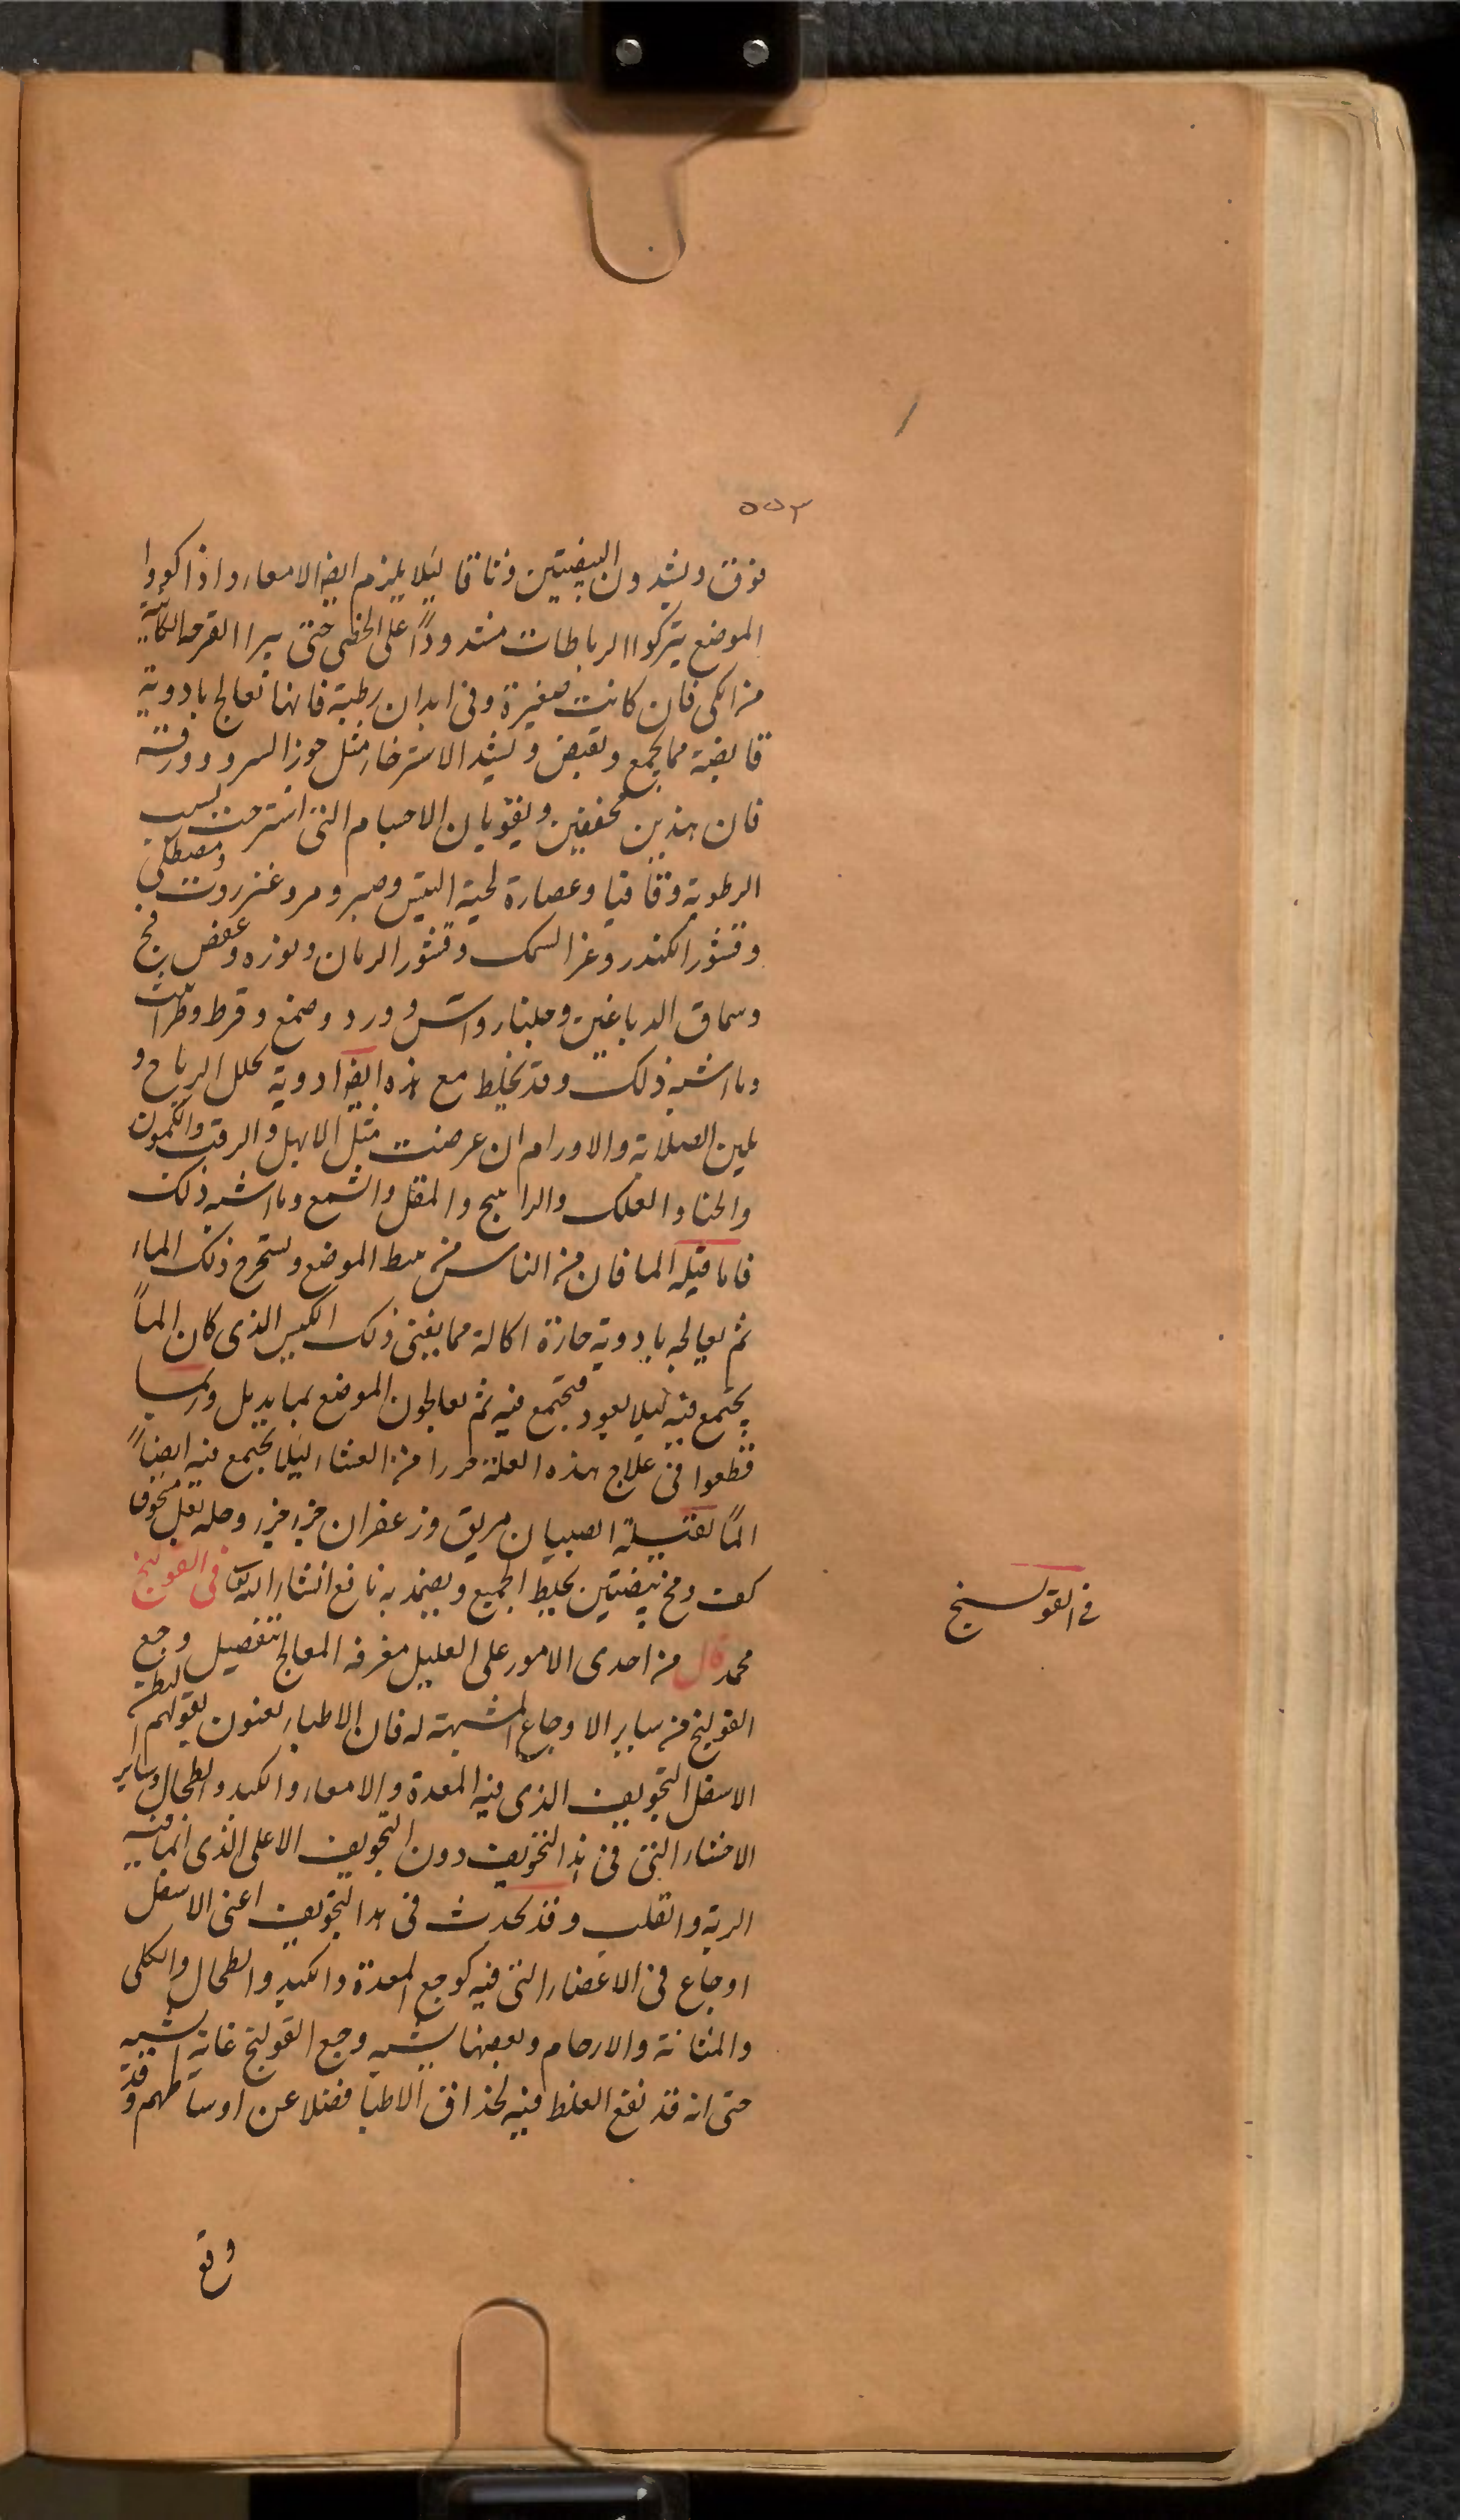 ٥٥٣
فوق ويشدون البيضتين وثاقا ليلا يلزم ايضا الامعاء واذا كووا
الموضع يتركوا الرباطات مشدوداً على الخصى حتى يبرا القرحه الكاينة
من الكى فان كانت صغيرة وفى ابدان رطبة فانها تعالج بادوية
قابضة مما يجمع ويقبض ويشد الاسترخاء مثل جوز السرو وورقه
فان هذين يجففين ويقويان الاجسام التى استرخت بسبب
الرطوبة وقاقيا وعصارة لحية التيس وصبر ومر وعنزروت ومصطكى
وقشور الكندر وغرا السمك وقشور الرمان وبوزه وعفص فج
وسماق الدباغين وجلنار واشق وورد وصمغ وقرط وطراثيث
وما اشبه ذلك وقد يخلط مع هذه ايضا ادوية تحلل الرياح و
يلين الصلابة والاورام ان عرضت مثل الابهل والزفت والكمون
والحنا والعلك والراتينج والمقل والشمع وما اشبه ذلك
فاما قيلة الما فان من الناس من يبط الموضع ويستخرج ذلك الماء
ثم يعالجه بادوية حارة اكالة مما يفنى ذلك الكيس الذى كان الماً
يجتمع فيه ليلا يعود فيجتمع فيه ثم يعالجون الموضع بما يدمل وربما
قطعوا فى علاج هذه العلة مررا من الغشاء ليلا يجتمع فيه ايضاً
الماً لفتيلة الصبيان مريق وزعفران جزء جزء وحله بخل مسحوق
كف ومخ بيضتين يخلط الجميع ويضمد به نافع انشاء الله تعالى فى القولنج
محمد قال من احدى الامور على العليل معرفة المعالج بتفصيل وجع
القولنج من ساير الاوجاع المشبهة له فان الاطباء يعنون بقولهم البطن
الاسفل التجويف الذى فيه المعدة والامعاء والكبد والطحال وساير
الاحشاء التى فى هذا التجويف دون التجويف الاعلى الذى انما فيه
الرية والقلب وقد يحدث فى هذا التجويف اعنى الاسفل
اوجاع فى الاعضاء التى فيه كوجع المعدة والكبد والطحال والكلى
والمثانة والارحام وبعضها يشبه وجع القولنج غاية الشبه
حتى انه قد يقع الغلط فيه لحذاق الاطبا فضلا عن اوساطهم وقد
وقع
فى القولنج